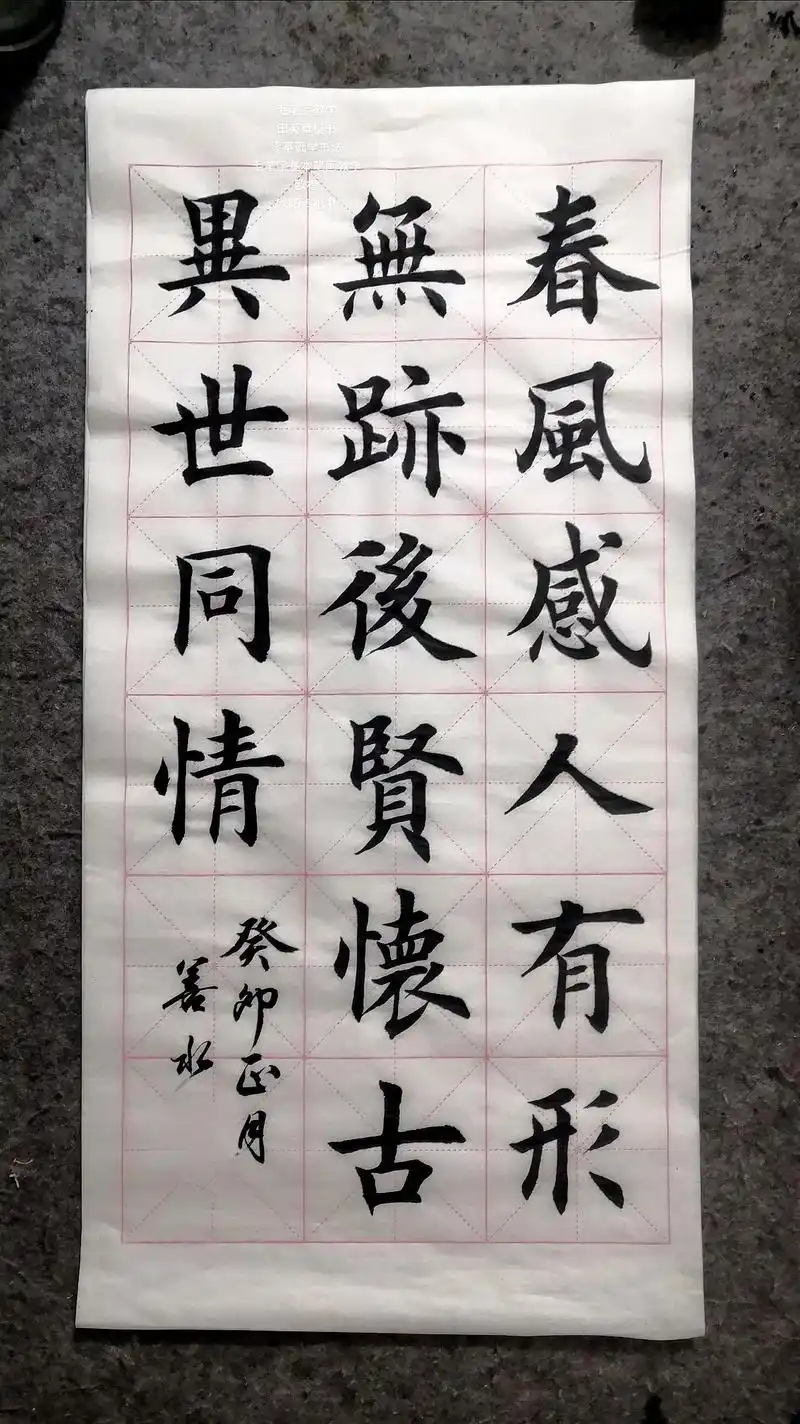 春風感人有形
無跡後賢懷古
異世同情
癸卯正月
善水